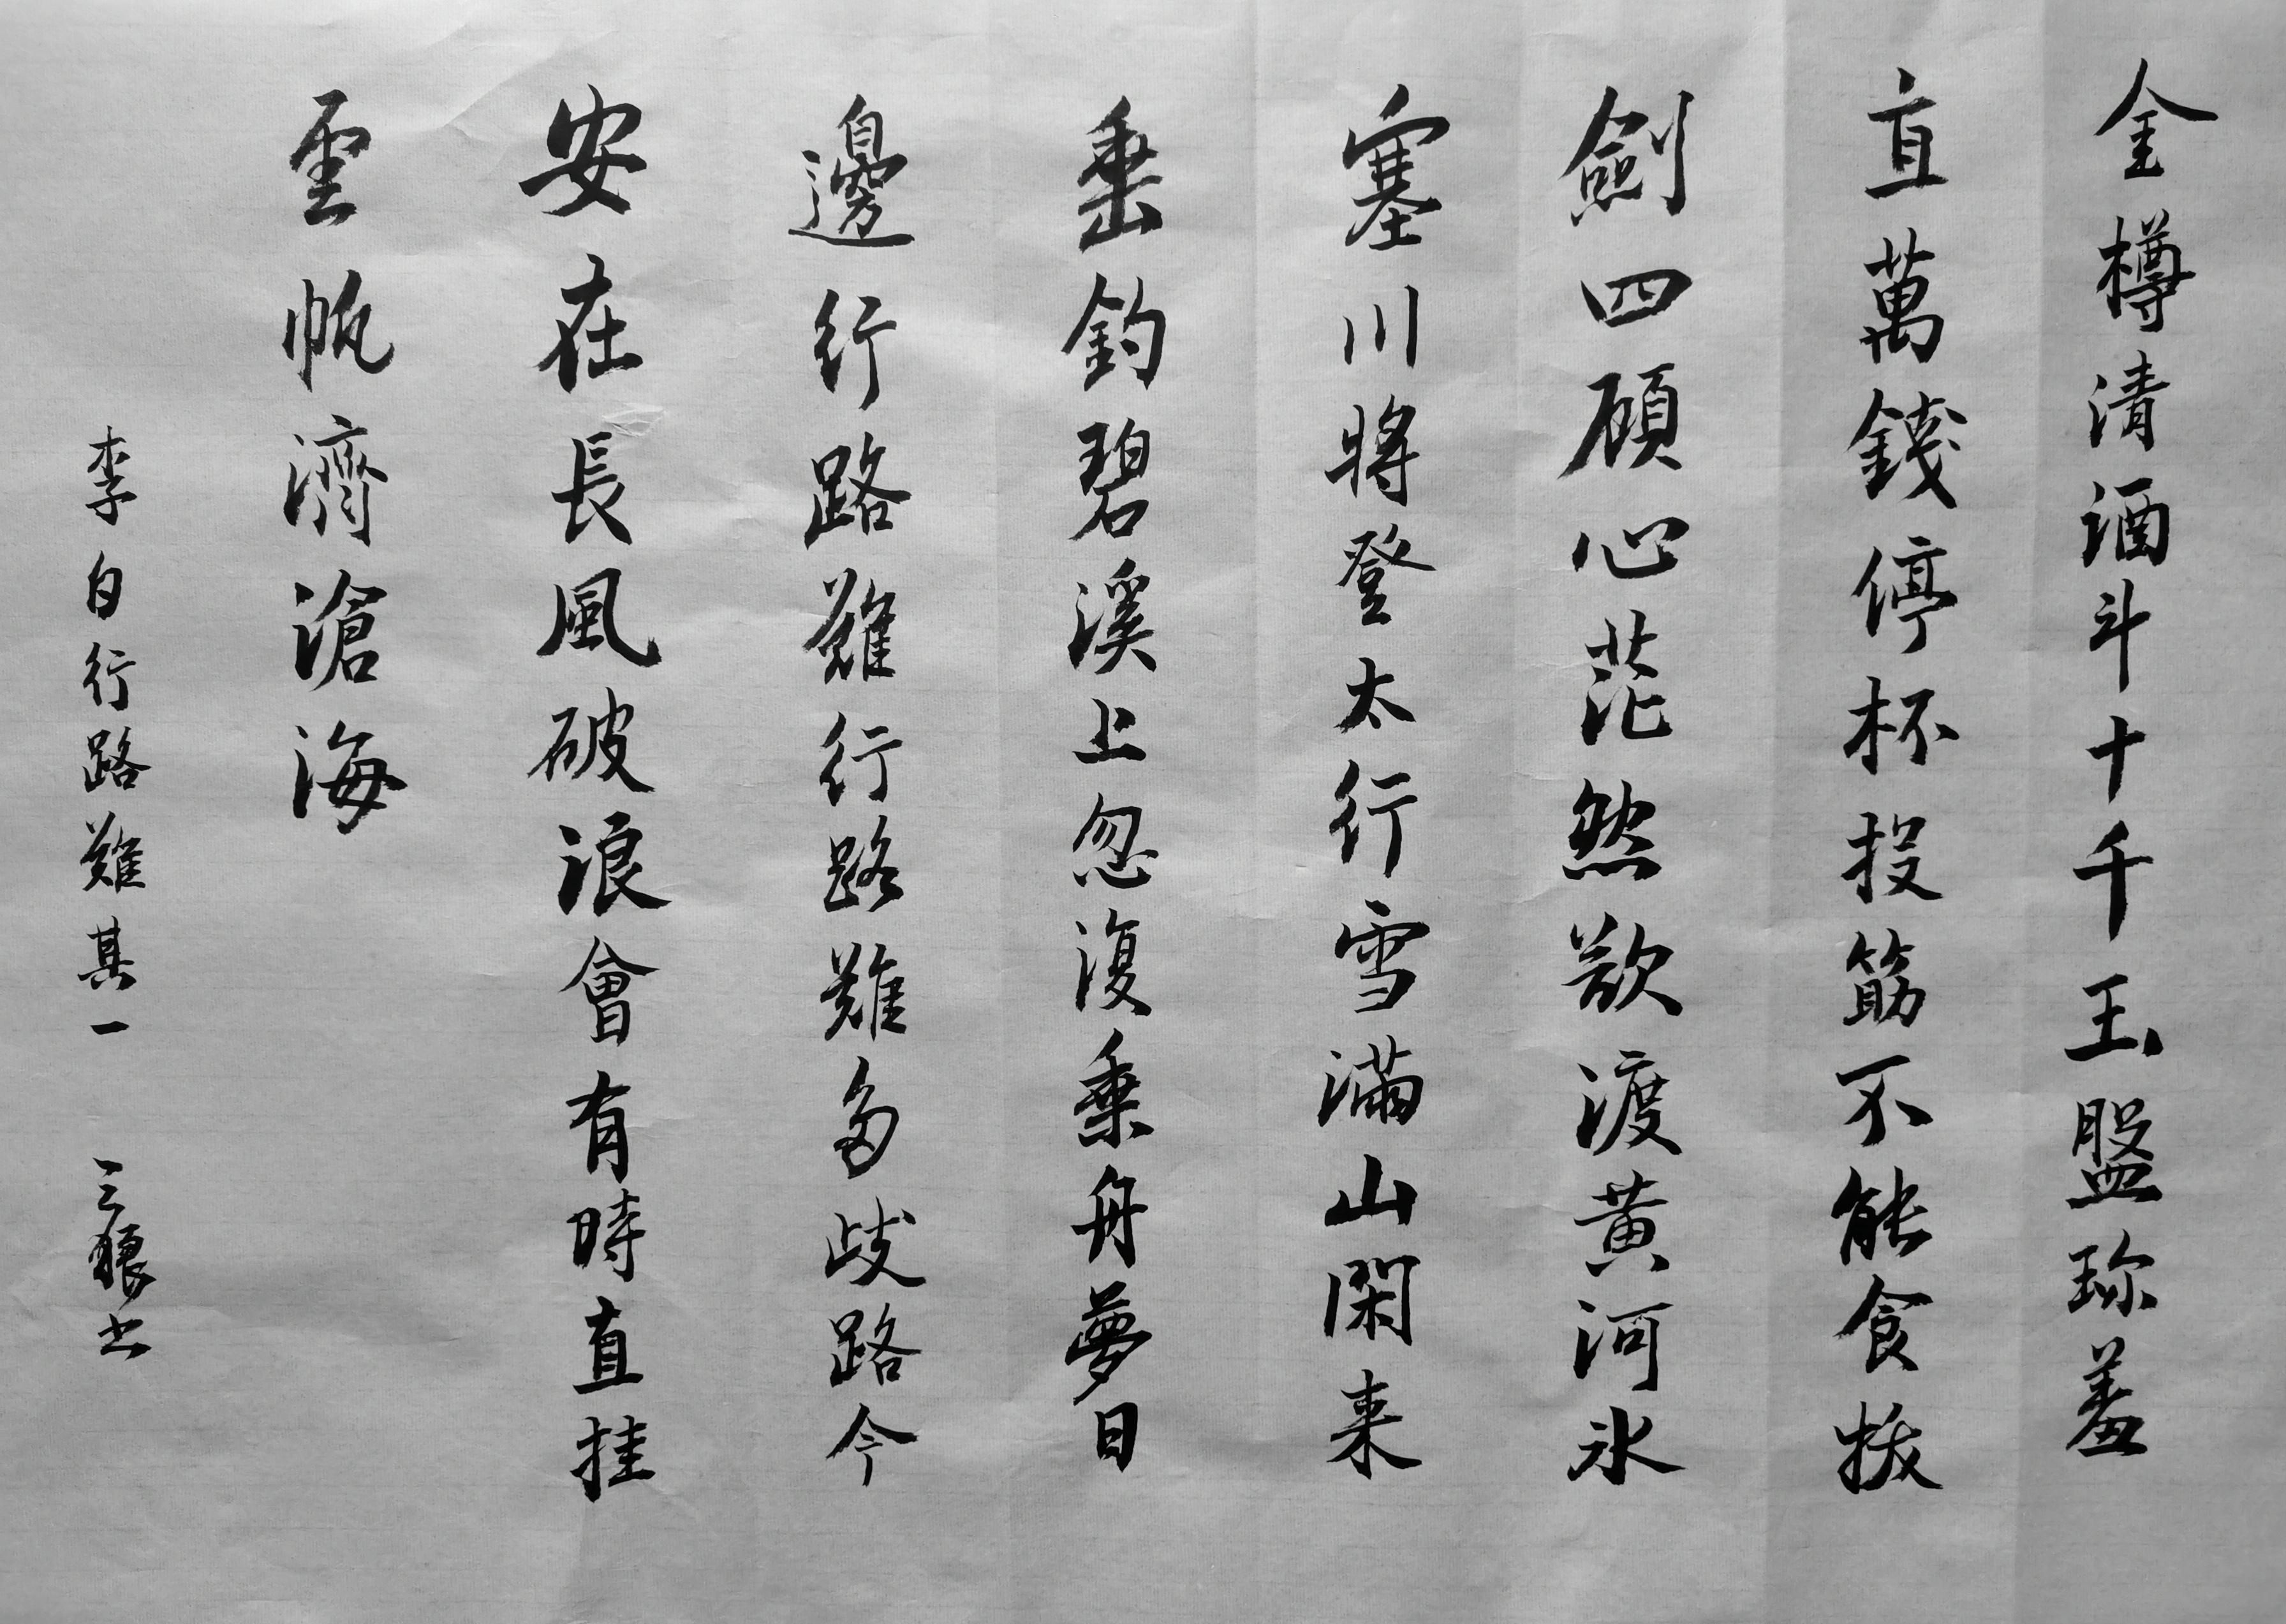 金樽清酒斗十千玉盤珎羞
直萬錢停杯投筯不能食拔
劍四顧心茫然欲渡黃河冰
塞川將登太行雪滿山閑来
垂釣碧溪上忽復乘舟夢日
邊行路難行路難多歧路今
安在長風破浪會有時直挂
雲帆濟滄海
李白行路難其一 三猿书